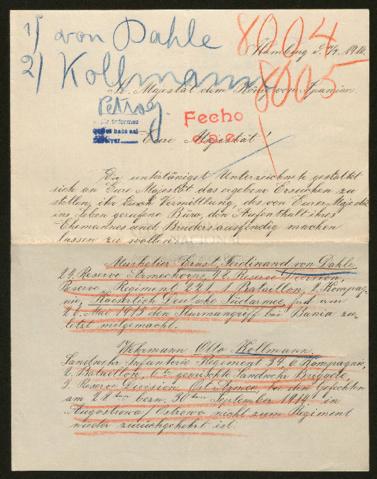 1) von Dahle
2) Kollmann
8004
8005
Hamburg d.
Sr. Majestät dem König von Spanien.
Petrog.
Fecho
Eure Majestät!
Die untertänigst Unterzeichnete gestattet
sich an Eure Majestät das ergebene Ersuchen zu
stellen, Vermittlung, des von Eurer Majestät
ins Leben gerufene Büro, den Aufenthalt ihres
Ehemannes und Bruders ausfindig machen
lassen zu wollen.
Musketier Ernst Ferdinand von Dahle
Reserve Armeekorps 48 Reserve Division
Reserve Regiment 221 1 Bataillon, 2 Kompag-
nie, Kaiserlich Deutsche Südarmee, hat am
Mai 1915 den Sturmangriff bei Bania zu-
letzt mitgemacht.
Wehrmann Otto Kollmann,
Landwehr Infanterie Regiment 34 6 Kompagnie,
2 Bataillon, gemischte Landwehr Brigade,
Reserve Division Ost-Armee, bei den Gefechten
am 28ten bezw. 30ten September 1914 in
Augustowa/Ostrowo nicht zum Regiment
wieder zurückgekehrt ist.